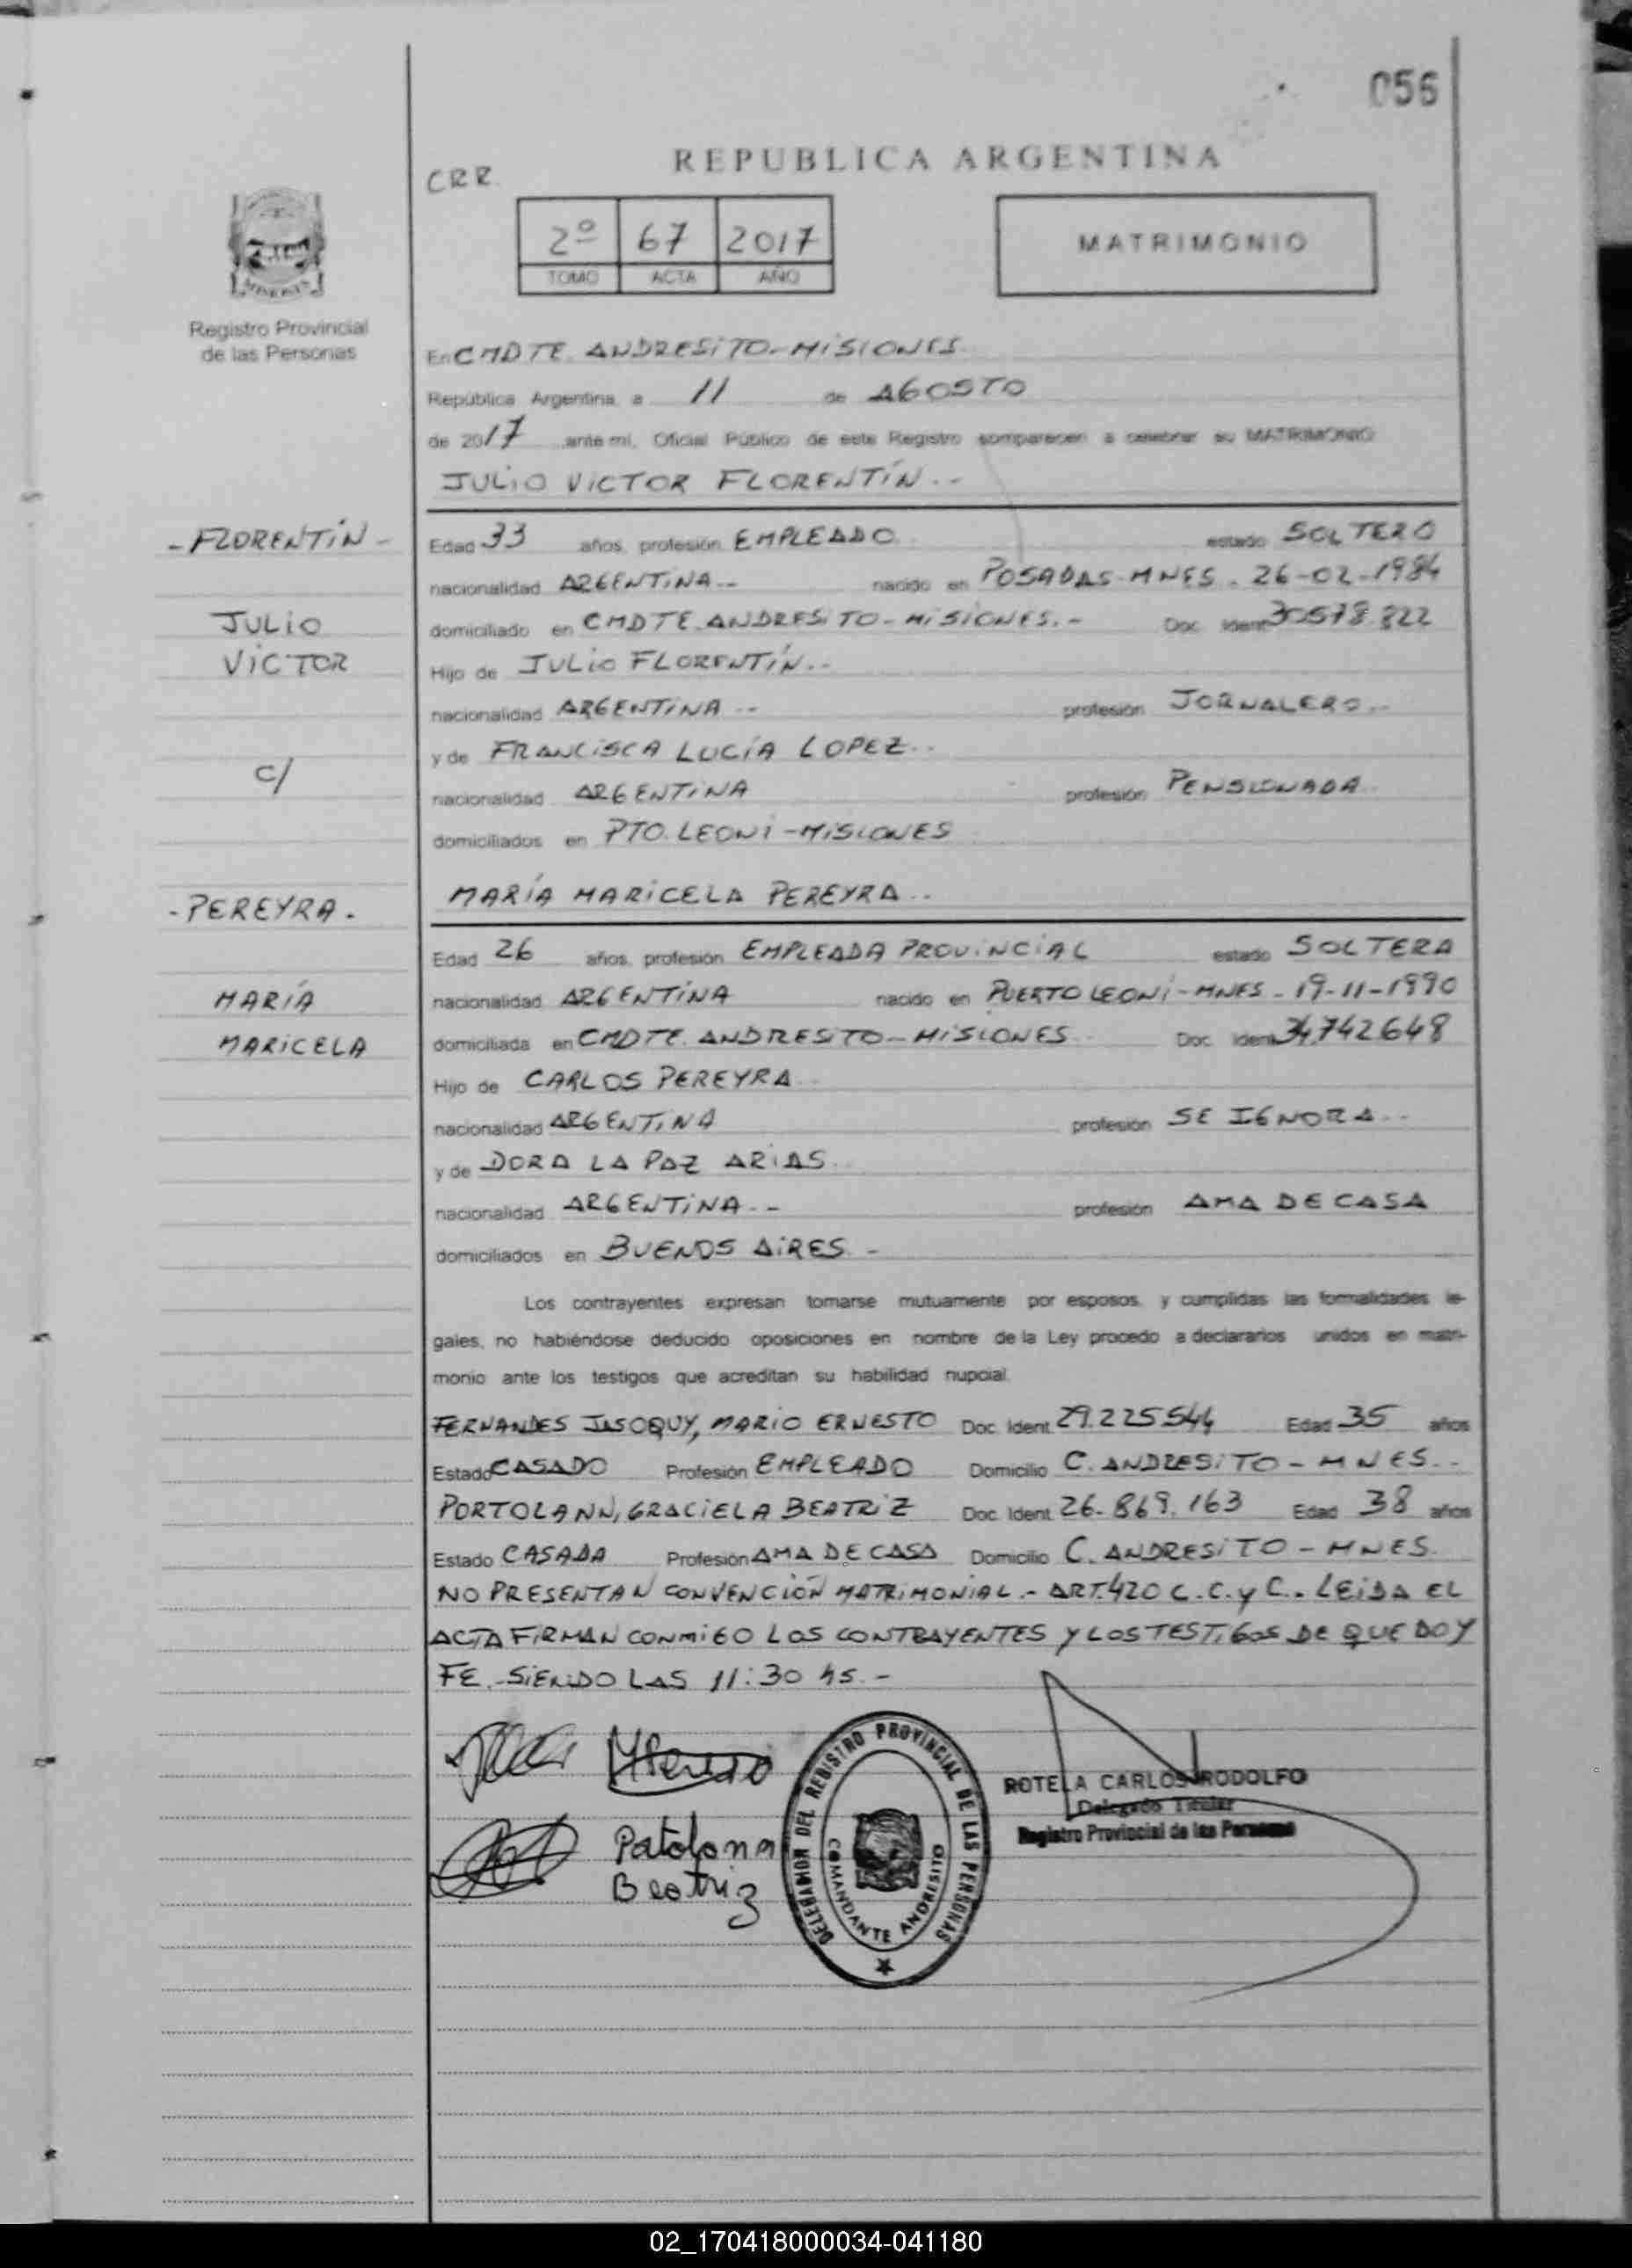 056
REPUBLICA ARGENTINA
CRR.
2º 67 2017
TOMO ACTA AÑO
MATRIMONIO
MISIONES
Registro Provincial
de las Personas
En CMDTE. ANDRESITO-MISIONES.
República Argentina, a 11 de AGOSTO
de 2017 ante mi, Oficial Público de este Registro comparecen a celebrar su MATRIMONIO
JULIO VICTOR FLORENTÍN.-
-FLORENTÍN-
Edad 33 años, profesión EMPLEADO estado SOLTERO
nacionalidad ARGENTINA-- nacido en POSADAS-MNES. 26-02-1984
JULIO
domiciliado en CMDTE. ANDRESITO-MISIONES.- Doc. Ident 30578.822
VICTOR
Hijo de JULIO FLORENTÍN..
nacionalidad ARGENTINA -- profesión JORNALERO..
y de FRANCISCA LUCÍA LOPEZ..
C/
nacionalidad ARGENTINA profesión PENSIONADA
domiciliados en PTO. LEONI-MISIONES
-PEREYRA.
MARÍA MARICELA PEREYRA..
Edad 26 años, profesión EMPLEADA PROVINCIAL estado SOLTERA
MARÍA
nacionalidad ARGENTINA nacido en PUERTO LEONI-MNES-19-11-1990
MARICELA
domiciliada en CMDTE. ANDRESITO-MISIONES Doc. Ident 34.742648
Hijo de CARLOS PEREYRA
nacionalidad ARGENTINA profesión SE IGNORA..
y de DORA LA PAZ ARIAS.
nacionalidad ARGENTINA.-- profesión AMA DE CASA
domiciliados en BUENOS AIRES -
Los contrayentes expresan tomarse mutuamente por esposos, y cumplidas las formalidades le-
gales, no habiéndose deducido oposiciones en nombre de la Ley procedo a declararlos unidos en matri-
monio ante los testigos que acreditan su habilidad nupcial.
FERNANDES, MARIO ERNESTO Doc. Ident. 29.225544 Edad 35 años
Estado CASADO Profesión EMPLEADO Domicilio C. ANDRESITO-MNES..
PORTOLANN, GRACIELA BEATRIZ Doc. Ident. 26.869.163 Edad 38 años
Estado CASADA Profesión AMA DE CASA Domicilio C. ANDRESITO-MNES.
NO PRESENTAN CONVENCIÓN MATRIMONIAL.- ART.420 C.C.y C.. LEIDA EL
ACTA FIRMAN CONMIGO LOS CONTRAYENTES Y LOS TESTIGOS DE QUE DOY
FE.-SIENDO LAS 11:30 hs.-
DELEGACION DEL REGISTRO PROVINCIAL DE LAS PERSONAS
COMANDANTE ANDRESITO
ROTELA CARLOS RODOLFO
Delegado Titular
Registro Provincial de las Personas
Patolona
Beatriz
02_170418000034-041180